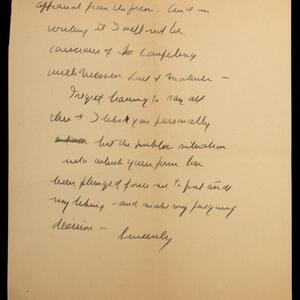 approval from his firm. And in
writing it I will not be
conscious of competing
with Messrs and
I regret having to say all
this & I like you personally
but the public situation
into which your firm has
been plunged forces me to put aside
my liking - and make my foregoing
decision -
Sincerely